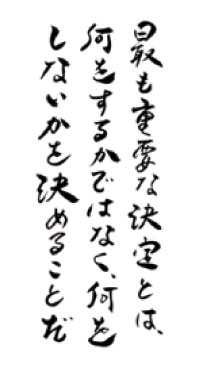 最も重要な決定とは、
何をするかではなく、何を
しないかを決めることだ